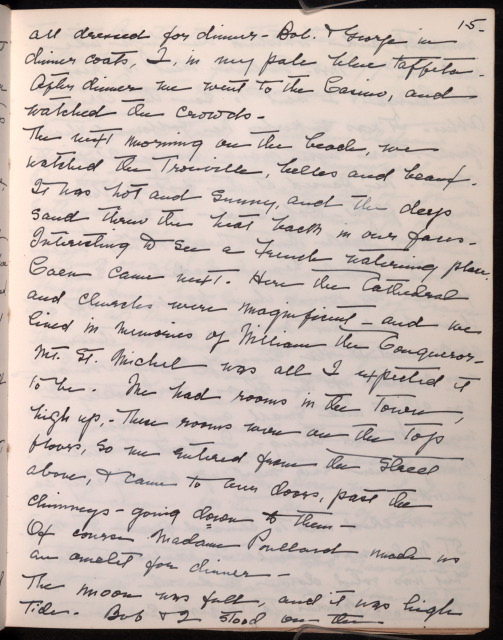 15-
all dressed for dinner - Bob. & George in
dinner coats, I, in my pale blue taffeta.
After dinner we went to the Casino, and
watched the crowds -
The next morning on the beach, we
watched the Trouville, belles and beaux.
It was hot and sunny, and the deep
sand threw the heat back in our faces -
Interesting to see a French watering place.
Caen came next. Here the Cathedral
and churches were magnificent - and we
lived in memories of William the Conqueror -
Mt. St. Michel was all I expected it
to be. We had rooms in the town,
high up, - These rooms were on the top
floors, so we entered from the street
above, & came to our doors, past the
chimneys - going down to them -
Of course Madame Poullard made us
an omelet for dinner -
The moon was full, and it was high
tide. Bob & I stood on the